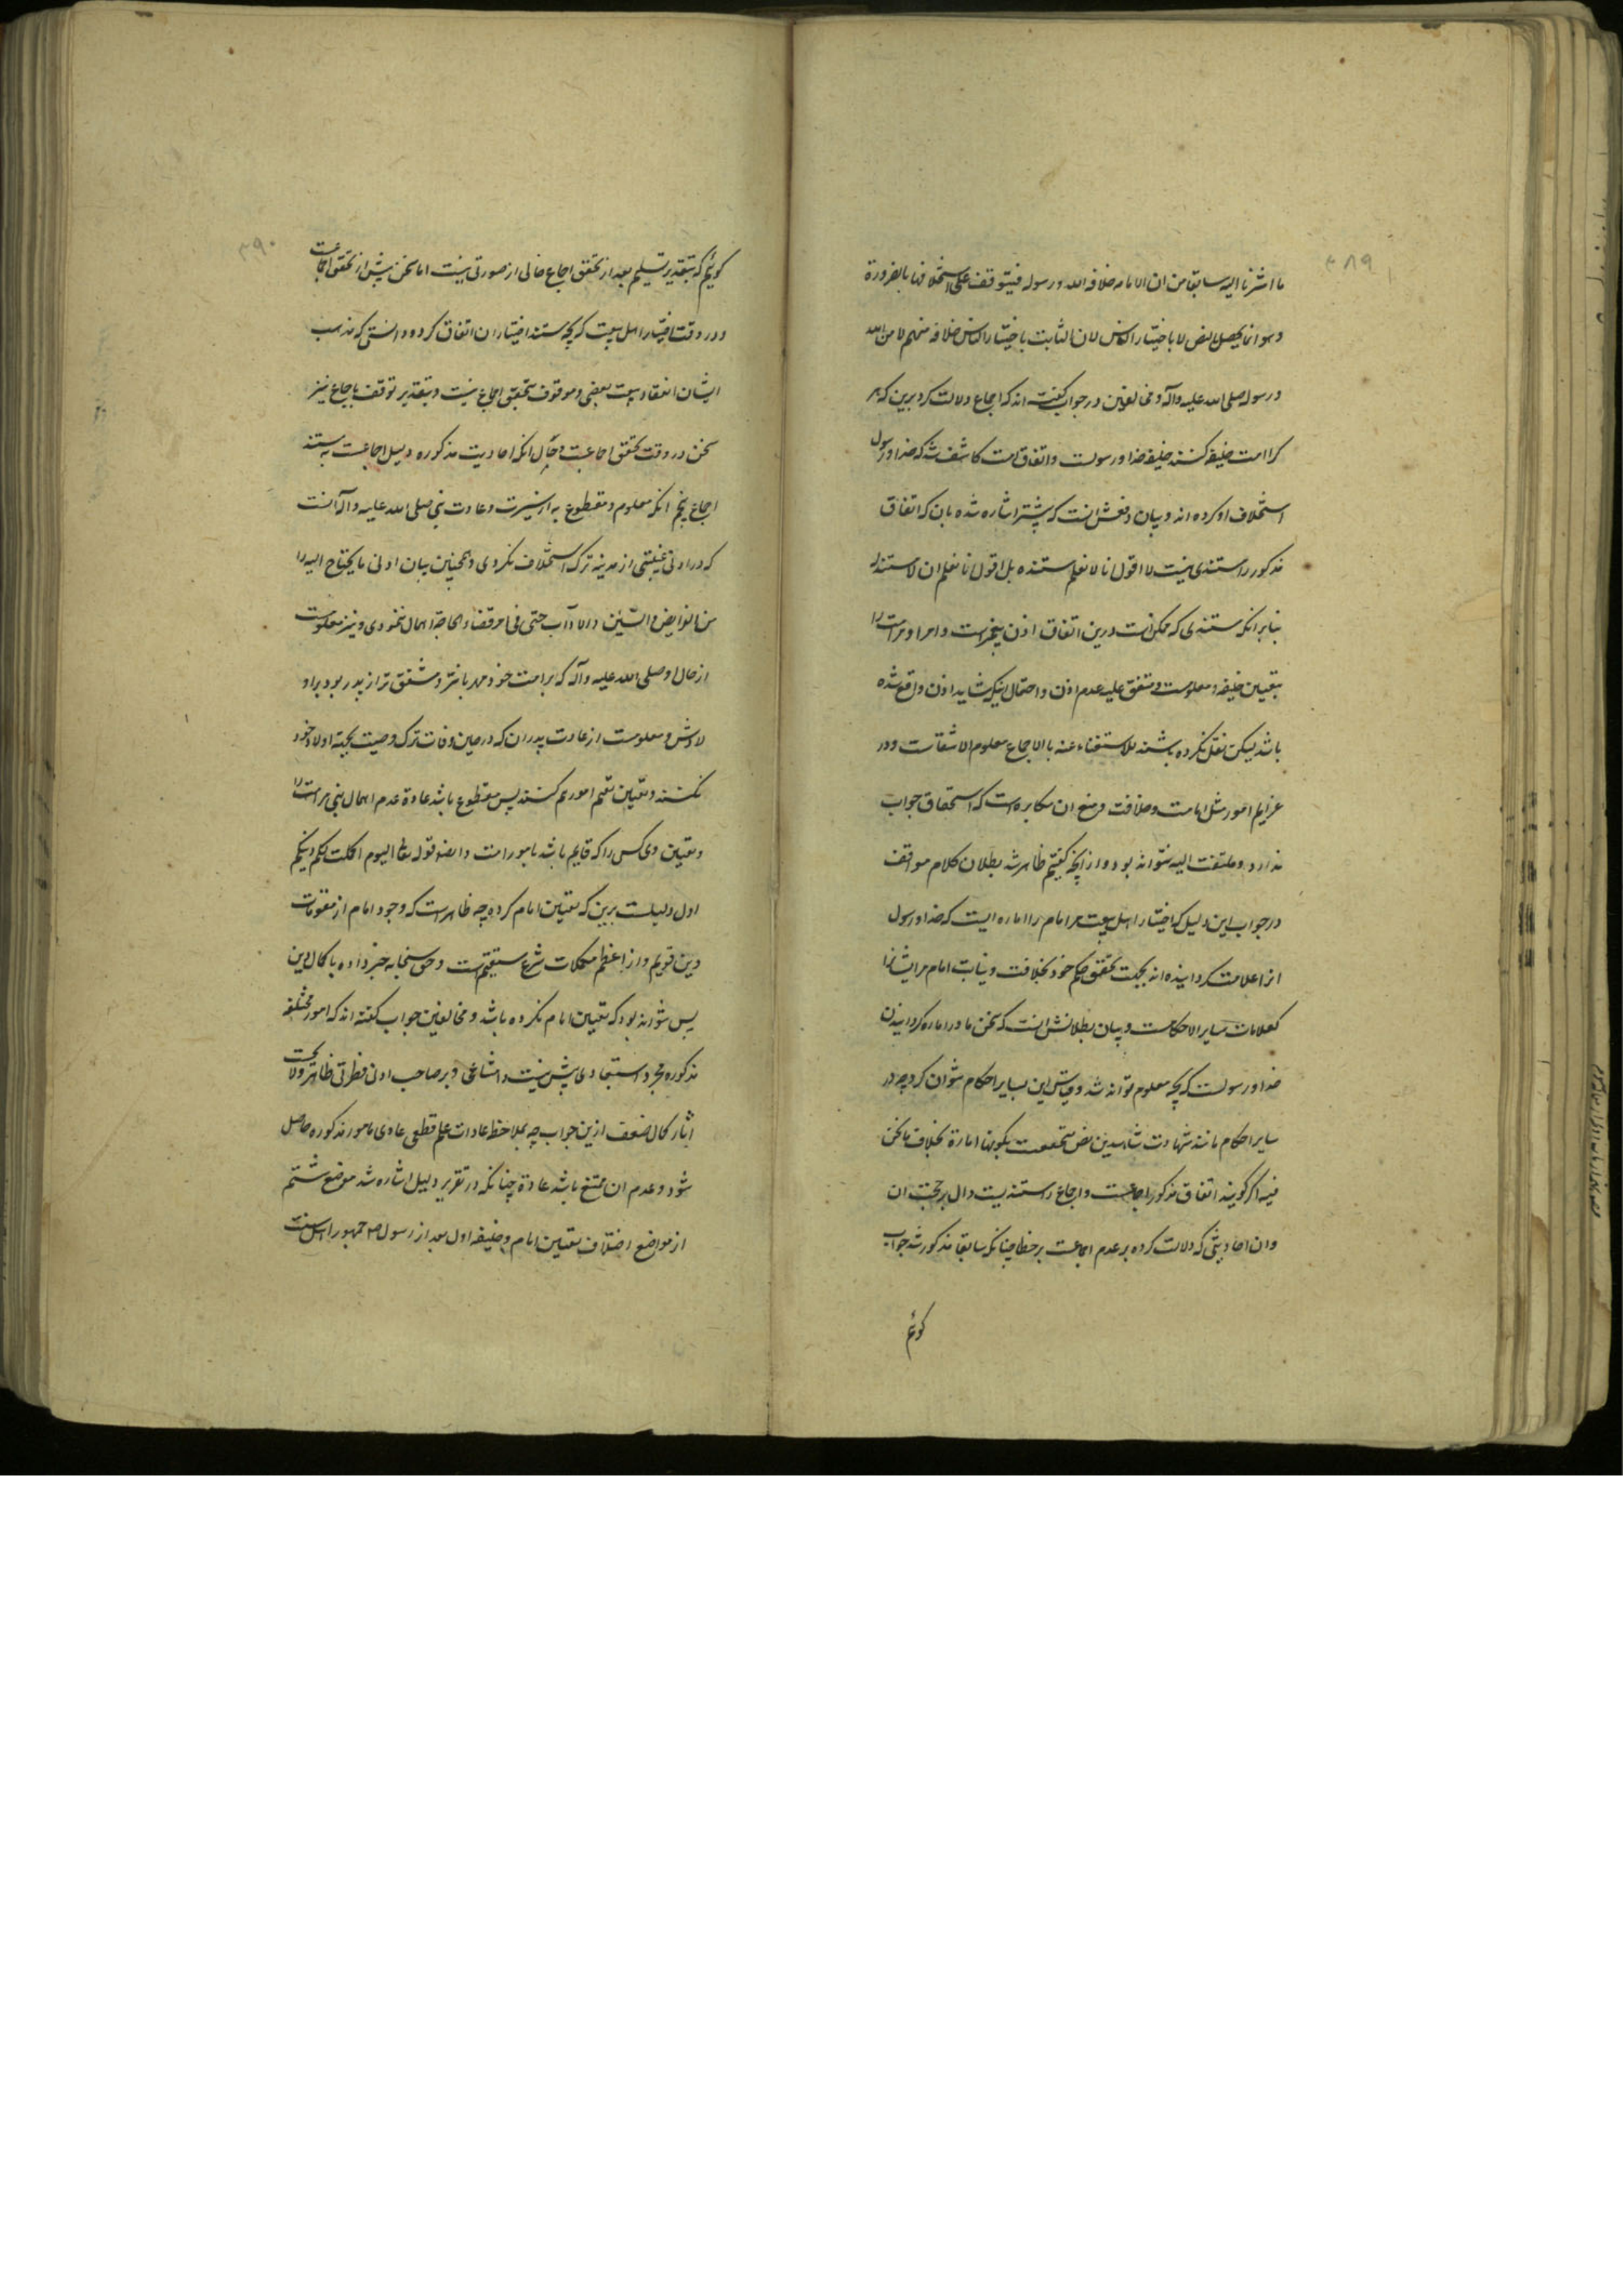 ۳۸۹
ما اشرنا الیه سابقا من ان الامامه خلافه الله و رسوله فیتوقف علی استخلافهما بالضرورة
وهو انما یحصل بالنص لا باختیار الناس لان الثابت باختیار الناس خلافه منهم لا من الله
و رسوله صلی الله علیه وآله و مخالفین در جواب گفته اند که اجماع دلالت کرد برین که هر
کرا امت خلیفه کنند خلیفه خدا و رسولست و اتفاق امت کاشفست که خدا و رسول
استخلاف او کرده اند و بیان دفعش انست که پیشتر اشاره شده بان که اتفاق
مذکور را مستندی نیست لا اقول انا لا نعلم مستنده بل اقول انا نعلم ان لا مستند له
بنا بر انکه مستندی که ممکنست درین اتفاق اذن پیغمبرست و امر او مر امت را
بتعیین خلیفه و معلومست و متفق علیه عدم اذن و احتمال اینکه شاید اذن واقع شده
باشد لیکن نقل نکرده باشند للاستغناء عنه بالاجماع معلوم الانتفاست و در
عزایم امور مثل امامت و خلافت و منع ان مکابره است که استحقاق جواب
ندارد و ملتفت الیه نتواند بود و از انچه گفتیم ظاهر شد بطلان کلام مواقف
در جواب این دلیل که اختیار اهل بیعت مر امام را اماره ایست که خدا و رسول
انرا علامت گردانیده اند بجهت تحقق حکم خود بخلافت و نیابت امام مر ایشانرا
کعلامات سایر الاحکام و بیان بطلانش انست که سخن ما در اماره گردانیدن
خدا و رسولست که بچه معلوم تواند شد و قیاس این بسایر احکام نتوان کرد چه در
سایر احکام مانند شهادت شاهدین نص متحققست بکونها امارة بخلاف ما نحن
فیه اگر گویند اتفاق مذکور اجماعست و اجماع را مستندیست دال بر حجیت ان
و ان احادیثی که دلالت کرده بر عدم اجماعست بر خطا چنانکه سابقا مذکور شد جواب
گوئیم
۳۹۰
گوئیم که بتقدیر تسلیم بعد از تحقق اجماع خالی از صورتی نیست اما سخن پیش از تحقق اجماعست
و در وقت اختیار اهل بیعت که بچه مستند اختیار ان اتفاق کرد و دانستی که مذهب
ایشان انعقاد بیعت بعضی و موقوف بتحقق اجماع نیست و بتقدیر توقف باجماع نیز
سخن در وقت تحقق اجماعست و حال انکه احادیث مذکوره دلیل اجماعست نه مستند
اجماع پنجم انکه معلوم و مقطوع به از سیرت و عادت نبی صلی الله علیه وآله انست
که در ادنی غیبتی از مدینه ترک استخلاف نکردی و همچنین بیان ادنی ما یحتاج الیه را
من الفرایض والسنن والاداب حتی فی امر قضاء الحاجة اهمال ننمودی و نیز معلومست
از حال او صلی الله علیه وآله که بر امت خود مهربانتر و مشفق تر از پدر بود بر او
لادش و معلومست از عادت پدران که در حین وفات ترک وصیت بجهة اولاد خود
نکنند و تعیین قیم امور هم کنند پس مقطوع باشد عادة عدم اهمال نبی مر امت را
و تعیین وی کس را که قایم باشد بامور امت و ایضا قوله تعالی الیوم اکملت لکم دینکم
اول دلیلست برین که تعیین امام کرده چه ظاهر است که وجود امام از مقومات
دین قویم و از اعظم مکملات شرع مستقیم است و حق سبحانه خبر داده باکمال دین
پس نتواند بود که تعیین امام نکرده باشد و مخالفین جواب گفته اند که امور مختلفه
مذکوره مجرد استبعادی بیش نیست و امتناعی و بر صاحب ادنی فطرتی ظاهر و لایحست
اثار کمال ضعف ازین جواب چه بملاحظ عادات علم قطعی عادی بامور مذکوره حاصل
شود و عدم ان ممتنع باشد عادة چنانکه در تقریر دلیل اشاره شد موضع ششم
از مواضع اختلاف تعیین امام و خلیفه اول بعد از رسول ص جمهور اهل سنت